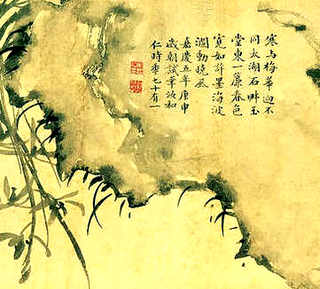 寒与梅華逈不
同太湖石畔玉
堂東一簾春色
寬如許墨海波
瀾動曉風
嘉慶五年庚申
歲朝試筆
仁時年七十有一